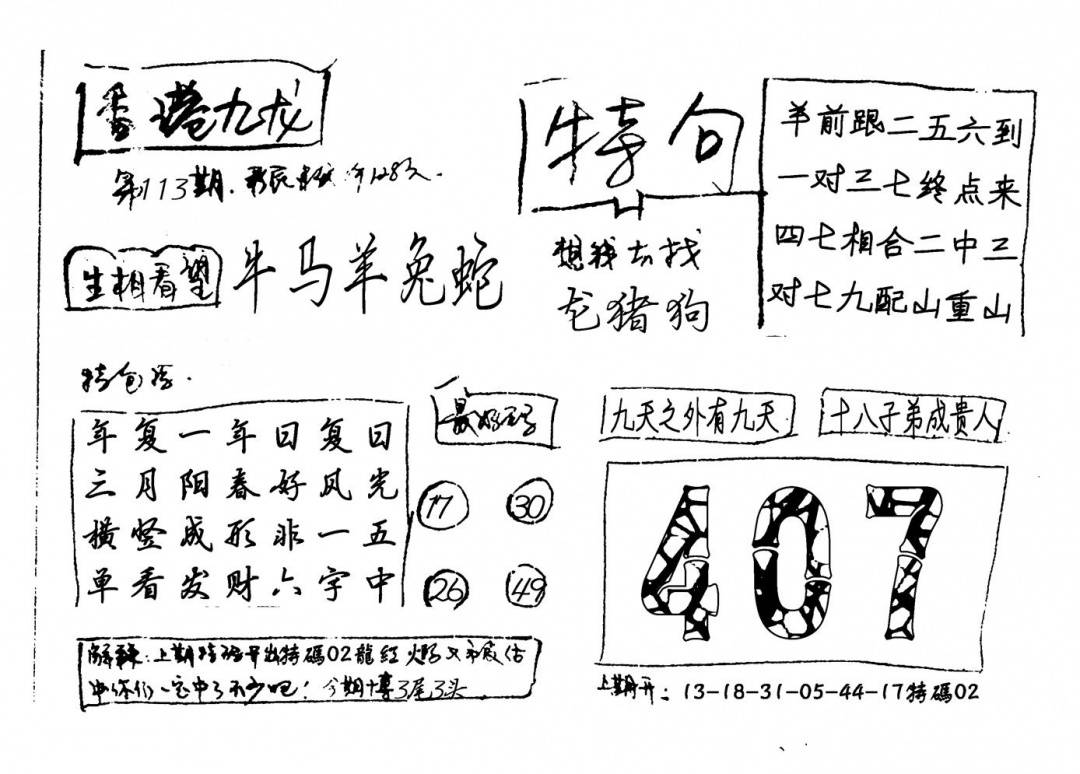 香港九龙
第113期.
生相看望
牛马羊兔蛇
特句
想我去找
龙猪狗
羊前跟二五六到
一对三七终点来
四七相合二中三
对七九配山重山
特包
年复一年日复日
三月阳春好风光
横竖成形非一五
单看发财六字中
最好
17 30
26 49
九天之外有九天
十八子弟成贵人
407
解释:上期 开出特碼02龍紅
中你们一定中了不少吧!今期 3尾3头
上期开:13-18-31-05-44-17特碼02